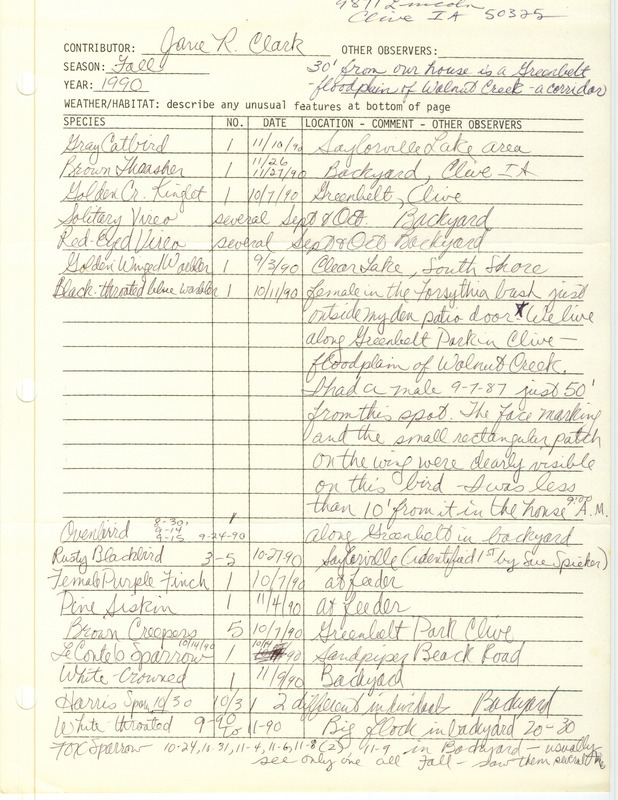 9871 Lincoln
Clive IA 50325
CONTRIBUTOR: Jane R. Clark OTHER OBSERVERS:
SEASON: Fall 30' from our house is a Greenbelt
YEAR: 1990 -floodplain of Walnut Creek - a corridor
WEATHER/HABITAT: describe any unusual features at bottom of page
SPECIES NO. DATE LOCATION - COMMENT - OTHER OBSERVERS
Gray Catbird 1 11/10/90 Saylorville Lake area
Brown Thrasher 1 11/26 11/27/90 Backyard, Clive IA
Golden Cr. Kinglet 1 10/7/90 Greenbelt, Clive
Solitary Vireo several Sept & Oct. Backyard
Red-Eyed Vireo several Sept & Oct Backyard
Golden Winged Warbler 1 9/3/90 Clear Lake, South Shore
Black-throated blue warbler 1 10/11/90 female in the Forsythia bush just
outside my den patio door * We live
along Greenbelt Park in Clive -
floodplain of Walnut Creek.
I had a male 9-7-87 just 50'
from this spot. The face marking
and the small rectangular patch
on the wing were clearly visible
on this bird - I was less
than 10' from it in the house 9:00 A.M.
Ovenbird 8-30, 9-14 9-15 9-24-90 " along Greenbelt in backyard
Rusty Blackbird 3-5 10-27-90 Saylorville (identified 1st by Sue Spieker)
Female Purple Finch 1 10/7/90 at feeder
Pine Siskin 1 11/4/90 at feeder
Brown Creepers 5 10/7/90 Greenbelt Park Clive
LeConte's Sparrow 10/14/90 1 10/14/90 Sandpiper Beach Road
White Crowned 1 11/9/90 Backyard
Harris Spar. 10/30 10/31 2 different individuals Backyard
White-throated 9-90 to 11-90 Big flock in backyard 20-30
Fox Sparrow 10-24, 11-31, 11-4, 11-6, 11-8 (2) 11-9 in Backyard - usually
see only one all Fall - saw them several